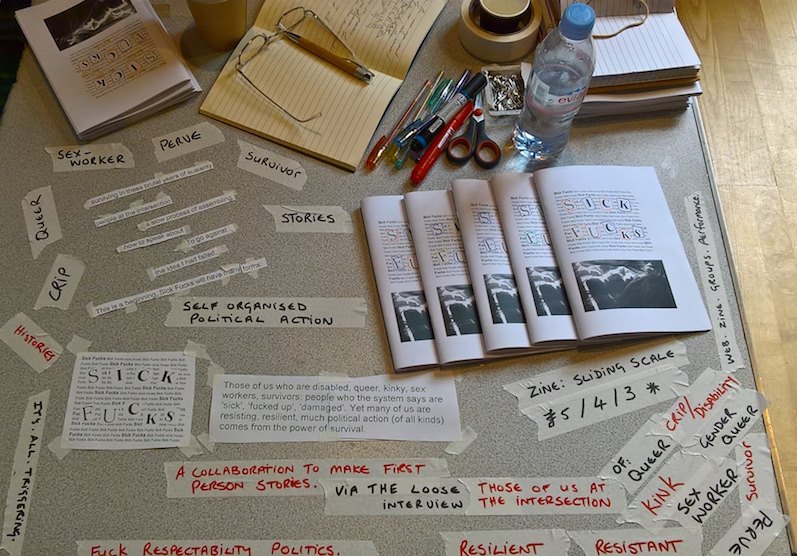 SICK
FUCKS
SEX-
WORKER
PERVE
SURVIVOR
surviving in these brutal years of austerity
people at the intersection
a slow process of assembling
how to speak about
To go against
the idea I had failed,
This is a beginning. Sick Fucks will have many forms.
QUEER
CRIP
HISTORIES
STORIES
SELF ORGANISED
POLITICAL ACTION
evian
SICK
FUCKS
WEB. ZINE. GROUPS. PERFORMANCE.
Sick Fucks
SICK
FUCKS
Those of us who are disabled, queer, kinky, sex
workers, survivors: people who the system says are
'sick', 'fucked up', 'damaged'. Yet many of us are
resisting, resilient, much political action (of all kinds)
comes from the power of survival.
ZINE: SLIDING SCALE
£5/4/3 *
IT'S ALL TRIGGERING.
A COLLABORATION TO MAKE FIRST
PERSON STORIES.
VIA THE LOOSE
INTERVIEW
THOSE OF US AT
THE INTERSECTION
OF: QUEER
CRIP/DISABILITY
GENDER
QUEER
KINK
SEX
WORKER
SURVIVOR
PERVE
FUCK RESPECTABILITY POLITICS.
RESILIENT
RESISTANT